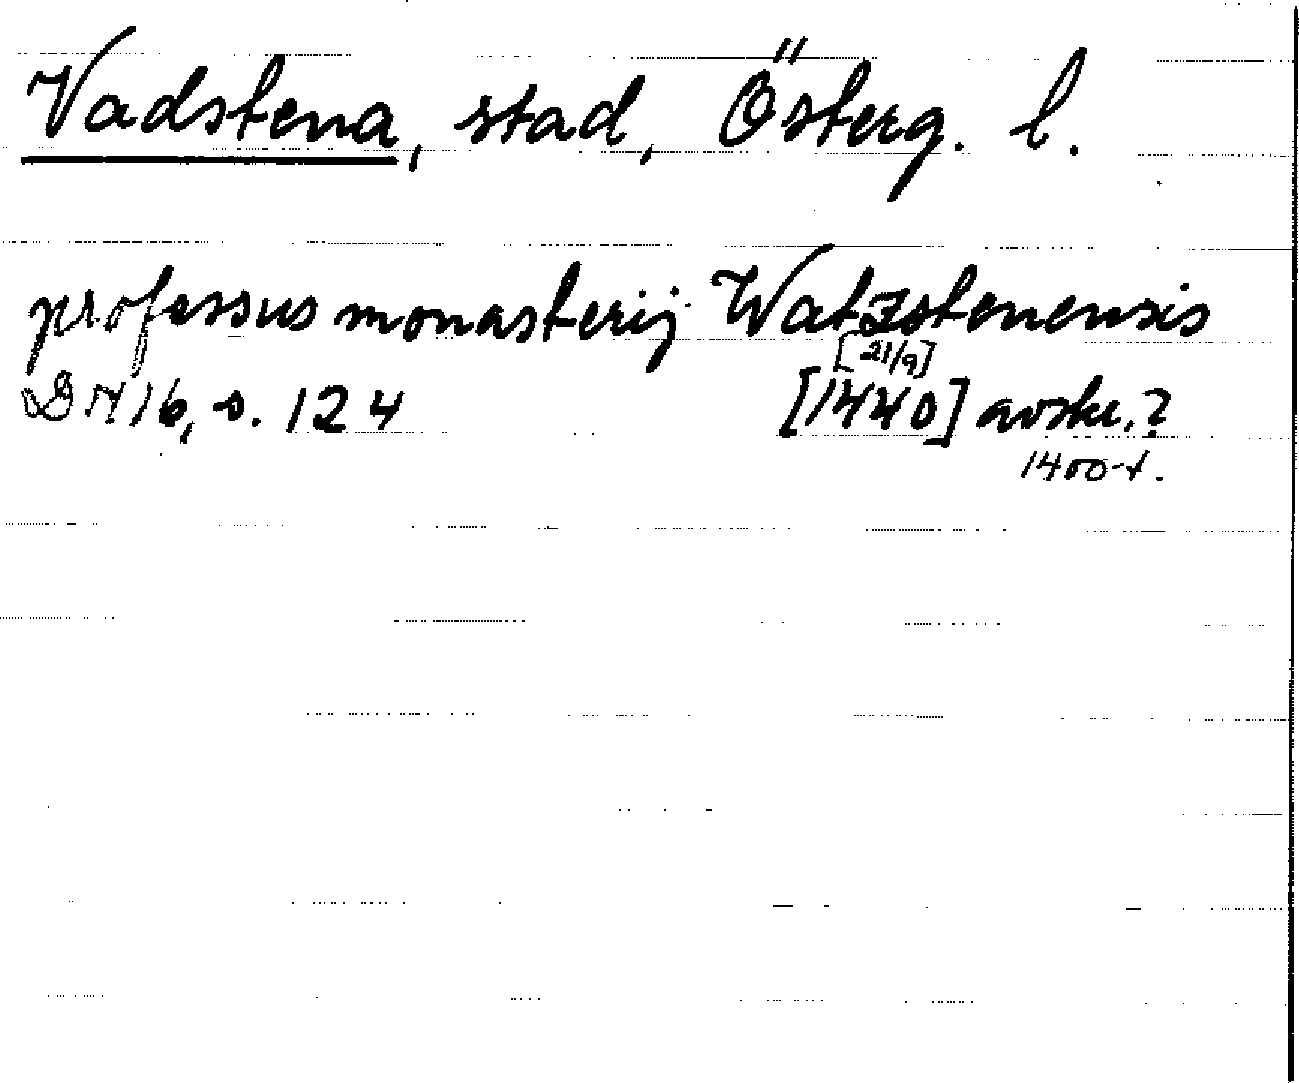 Vadstena, stad, Österg. l.
professus monasterij Watzstenensis
[21/9]
DN 16, s. 124 [1440] avskr.?
1400-t.